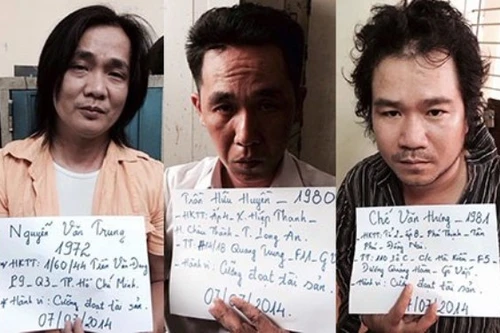 Nguyễn Văn Trung
1972
HKTT: 1/60/44 Trần Văn Đang
P9-Q3-TP. Hồ Chí Minh.
Hành vi: Cưỡng đoạt tài sản.
07/07/2014
Trần Hữu Huyền 1980
HKTT: Ấp 4 X. Hiệp Thạnh
H. Châu Thành T. Long An.
18 Quang Trung F11 G
Hành vi: Cưỡng đoạt tài sản.
07/07/2014
Chế Văn Hưng - 1981
HKTT: Phú Thạnh - Tân
Phú - Đồng Nai.
TT: 110 C/c Hà Kiều - F5
Dương Quảng Hàm - Gò Vấp.
Hành vi: Cưỡng đoạt tài sản.
07/07/2014